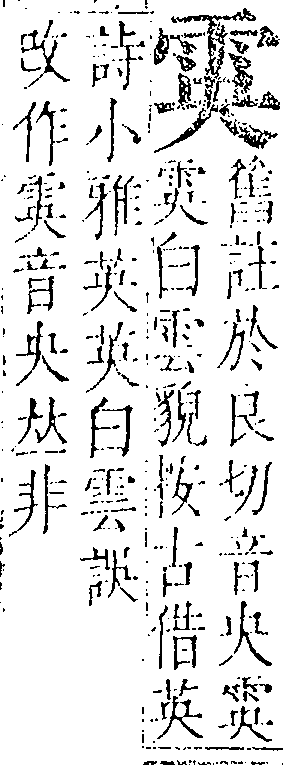 霙
舊註於良切音央霙
霙白雲貌按古借英
詩小雅英英白雲誤
改作霙音央𠀤非